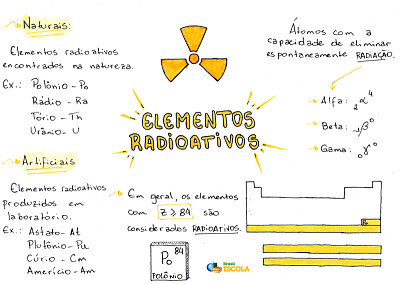 Naturais:
Elementos radioativos
encontrados na natureza.
Ex.: Polônio - Po
Rádio - Ra
Tório - Th
Urânio - U
Artificiais
Elementos radioativos
produzidos em
laboratório.
Ex.: Astato - At
Plutônio - Pu
Cúrio - Cm
Amerício - Am
ELEMENTOS
RADIOATIVOS
Átomos com a
capacidade de eliminar
espontaneamente RADIAÇÃO.
Alfa: ₂α⁴
Beta: ₋₁β⁰
Gama: ₀γ⁰
Em geral, os elementos
com Z ≥ 84 são
considerados RADIOATIVOS.
84
Po
POLÔNIO
Brasil
ESCOLA